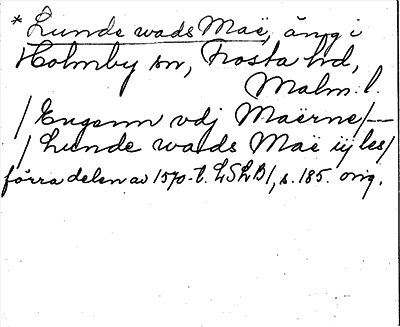 * Lunde wads Maë, äng i
Holmby sn, Frosta hd,
Malm. l.
/ Engenn vdj Maërne/—
/ Lunde wads Maë iij les/
förra delen av 1570-t. LSLB/, s. 185. orig.